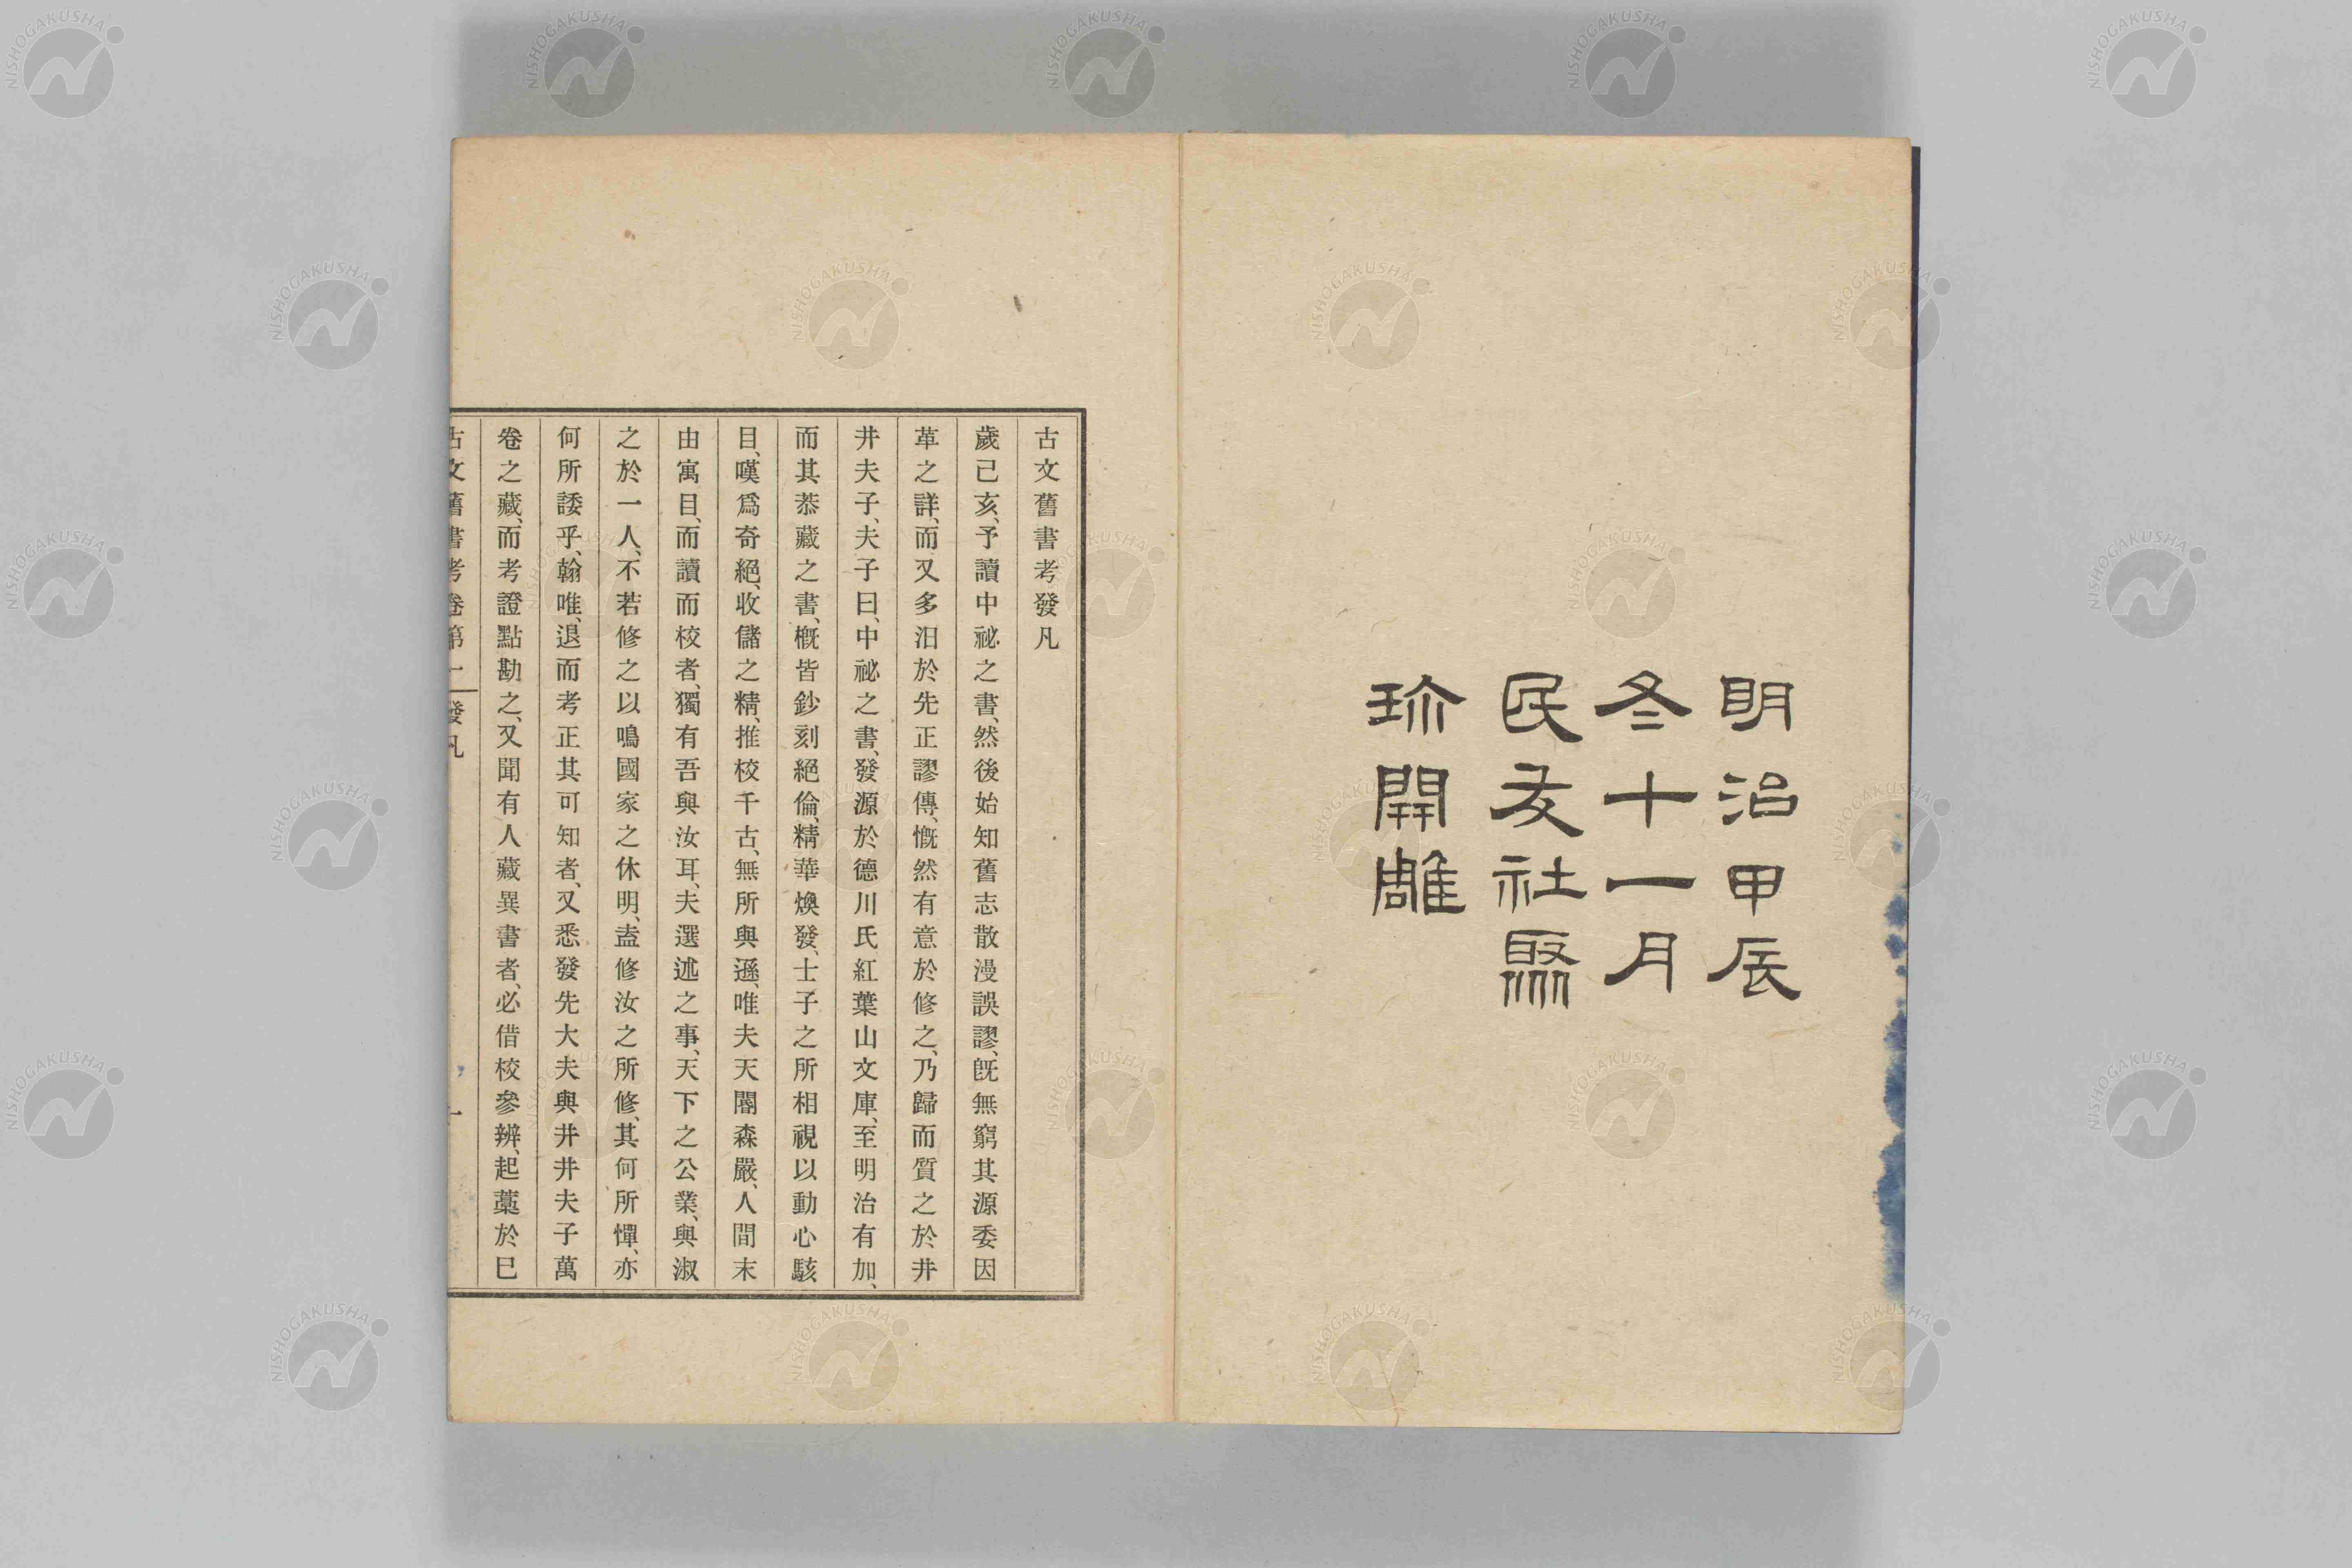 明治甲辰
冬十一月
民友社聚
珍開雕
古文舊書考發凡
歲己亥、予讀中祕之書、然後始知舊志散漫誤謬、旣無窮其源委因
革之詳、而又多汨於先正謬傳、慨然有意於修之、乃歸而質之於井
井夫子、夫子曰、中祕之書、發源於德川氏紅葉山文庫、至明治有加、
而其恭藏之書、槪皆鈔刻絕倫、精華煥發、士子之所相視以動心駭
目、嘆爲奇絕、收儲之精、推校千古、無所與遜、唯夫天閣森嚴、人間末
由寓目、而讀而校者、獨有吾與汝耳、夫選述之事、天下之公業、與淑
之於一人、不若修之以鳴國家之休明、盍修汝之所修、其何所憚、亦
何所諉乎、翰唯、退而考正其可知者、又悉發先大夫與井井夫子萬
卷之藏、而考證點勘之、又聞有人藏異書者、必借校參辨、起藁於巳
古文舊書考卷第一 發凡 一
NISHOGAKUSHA